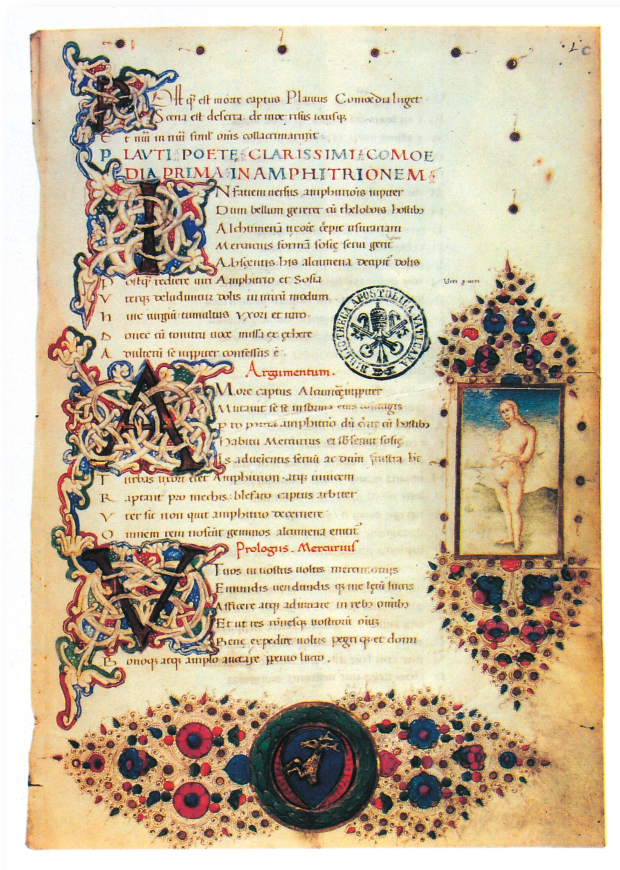 Post q̃ est morte captus Plautus Comoedia luget
Scena est deserta. de inde risus iocusq;
Et nũi innũi simul omis collacrimarunt
PLAVTI POETE CLARISSIMI COMOE
DIA PRIMA IN AMPHITRIONEM
IN faciem versus amphitrionis iupiter
Dum bellum gereret cũ thelobois hostib⁹
Alchmenã uxorẽ cepit usurariam
Mercurius formã sosie serui gerit
Absentis. his alcumena decipit dolis
Postq̃ rediere uiri Amphitrio et Sosia
Vterq; deluduntur dolis in mirũ modum
Hinc iurgium tumultus Vxori et uiro
Donec cũ tonitru uoce missa ex ethere
Adulterũ se iuppiter confessus ẽ
BIBLIOTHECA APOSTOLICA VATICANA
Argumentum.
AMore captus Alcumene iuppiter
Mutauit se se in formã eius coniugis
Pro patria amphitrio dũ cũ hostib⁹
Habitu Mercurius ei subseruit sosie
Is aduenientes seruũ ac dnũm frustra
Turbas uxori ciet Amphitrion atq; inuicem
Raptant pro mechis. blefaro captus arbiter
Vter sit non quit amphitrio decernere
Omnem rem noscũt geminos alcumena
Prologus. Mercurius
VVos in uostris uoltis mercimoniis
Emundis uendundis q; me letũ lucris
Afficere atq; adiuuare in reb⁹ omib⁹
Et ut res rõnesq; uostrorũ oiũz
Bene expedire uoltis peregri q; et domi
Bonoq; atq; amplo auctare perpetuo lucro.